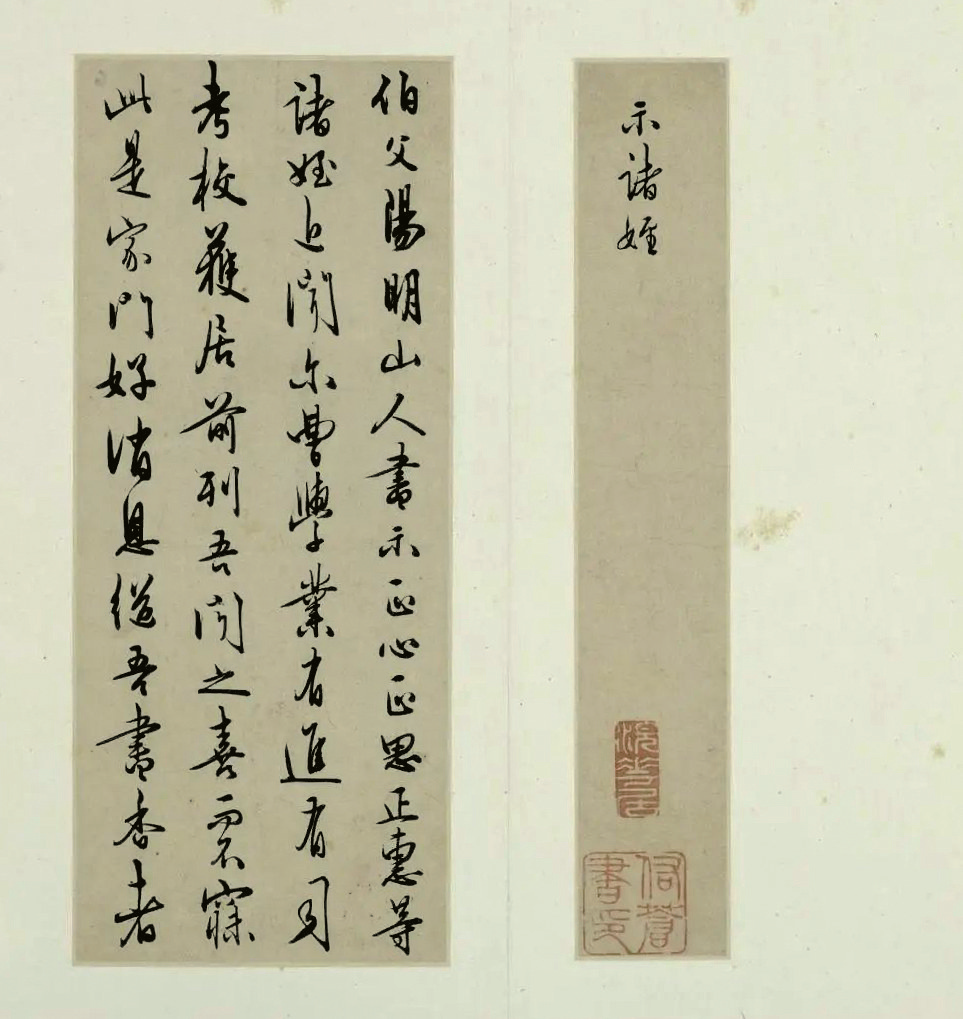 示諸姪
伯父陽明山人書示正心正思正憲等
諸姪近聞尔曹學業有進有司
考校獲居前列吾聞之喜而不寐
此是家門好消息繼吾書香者